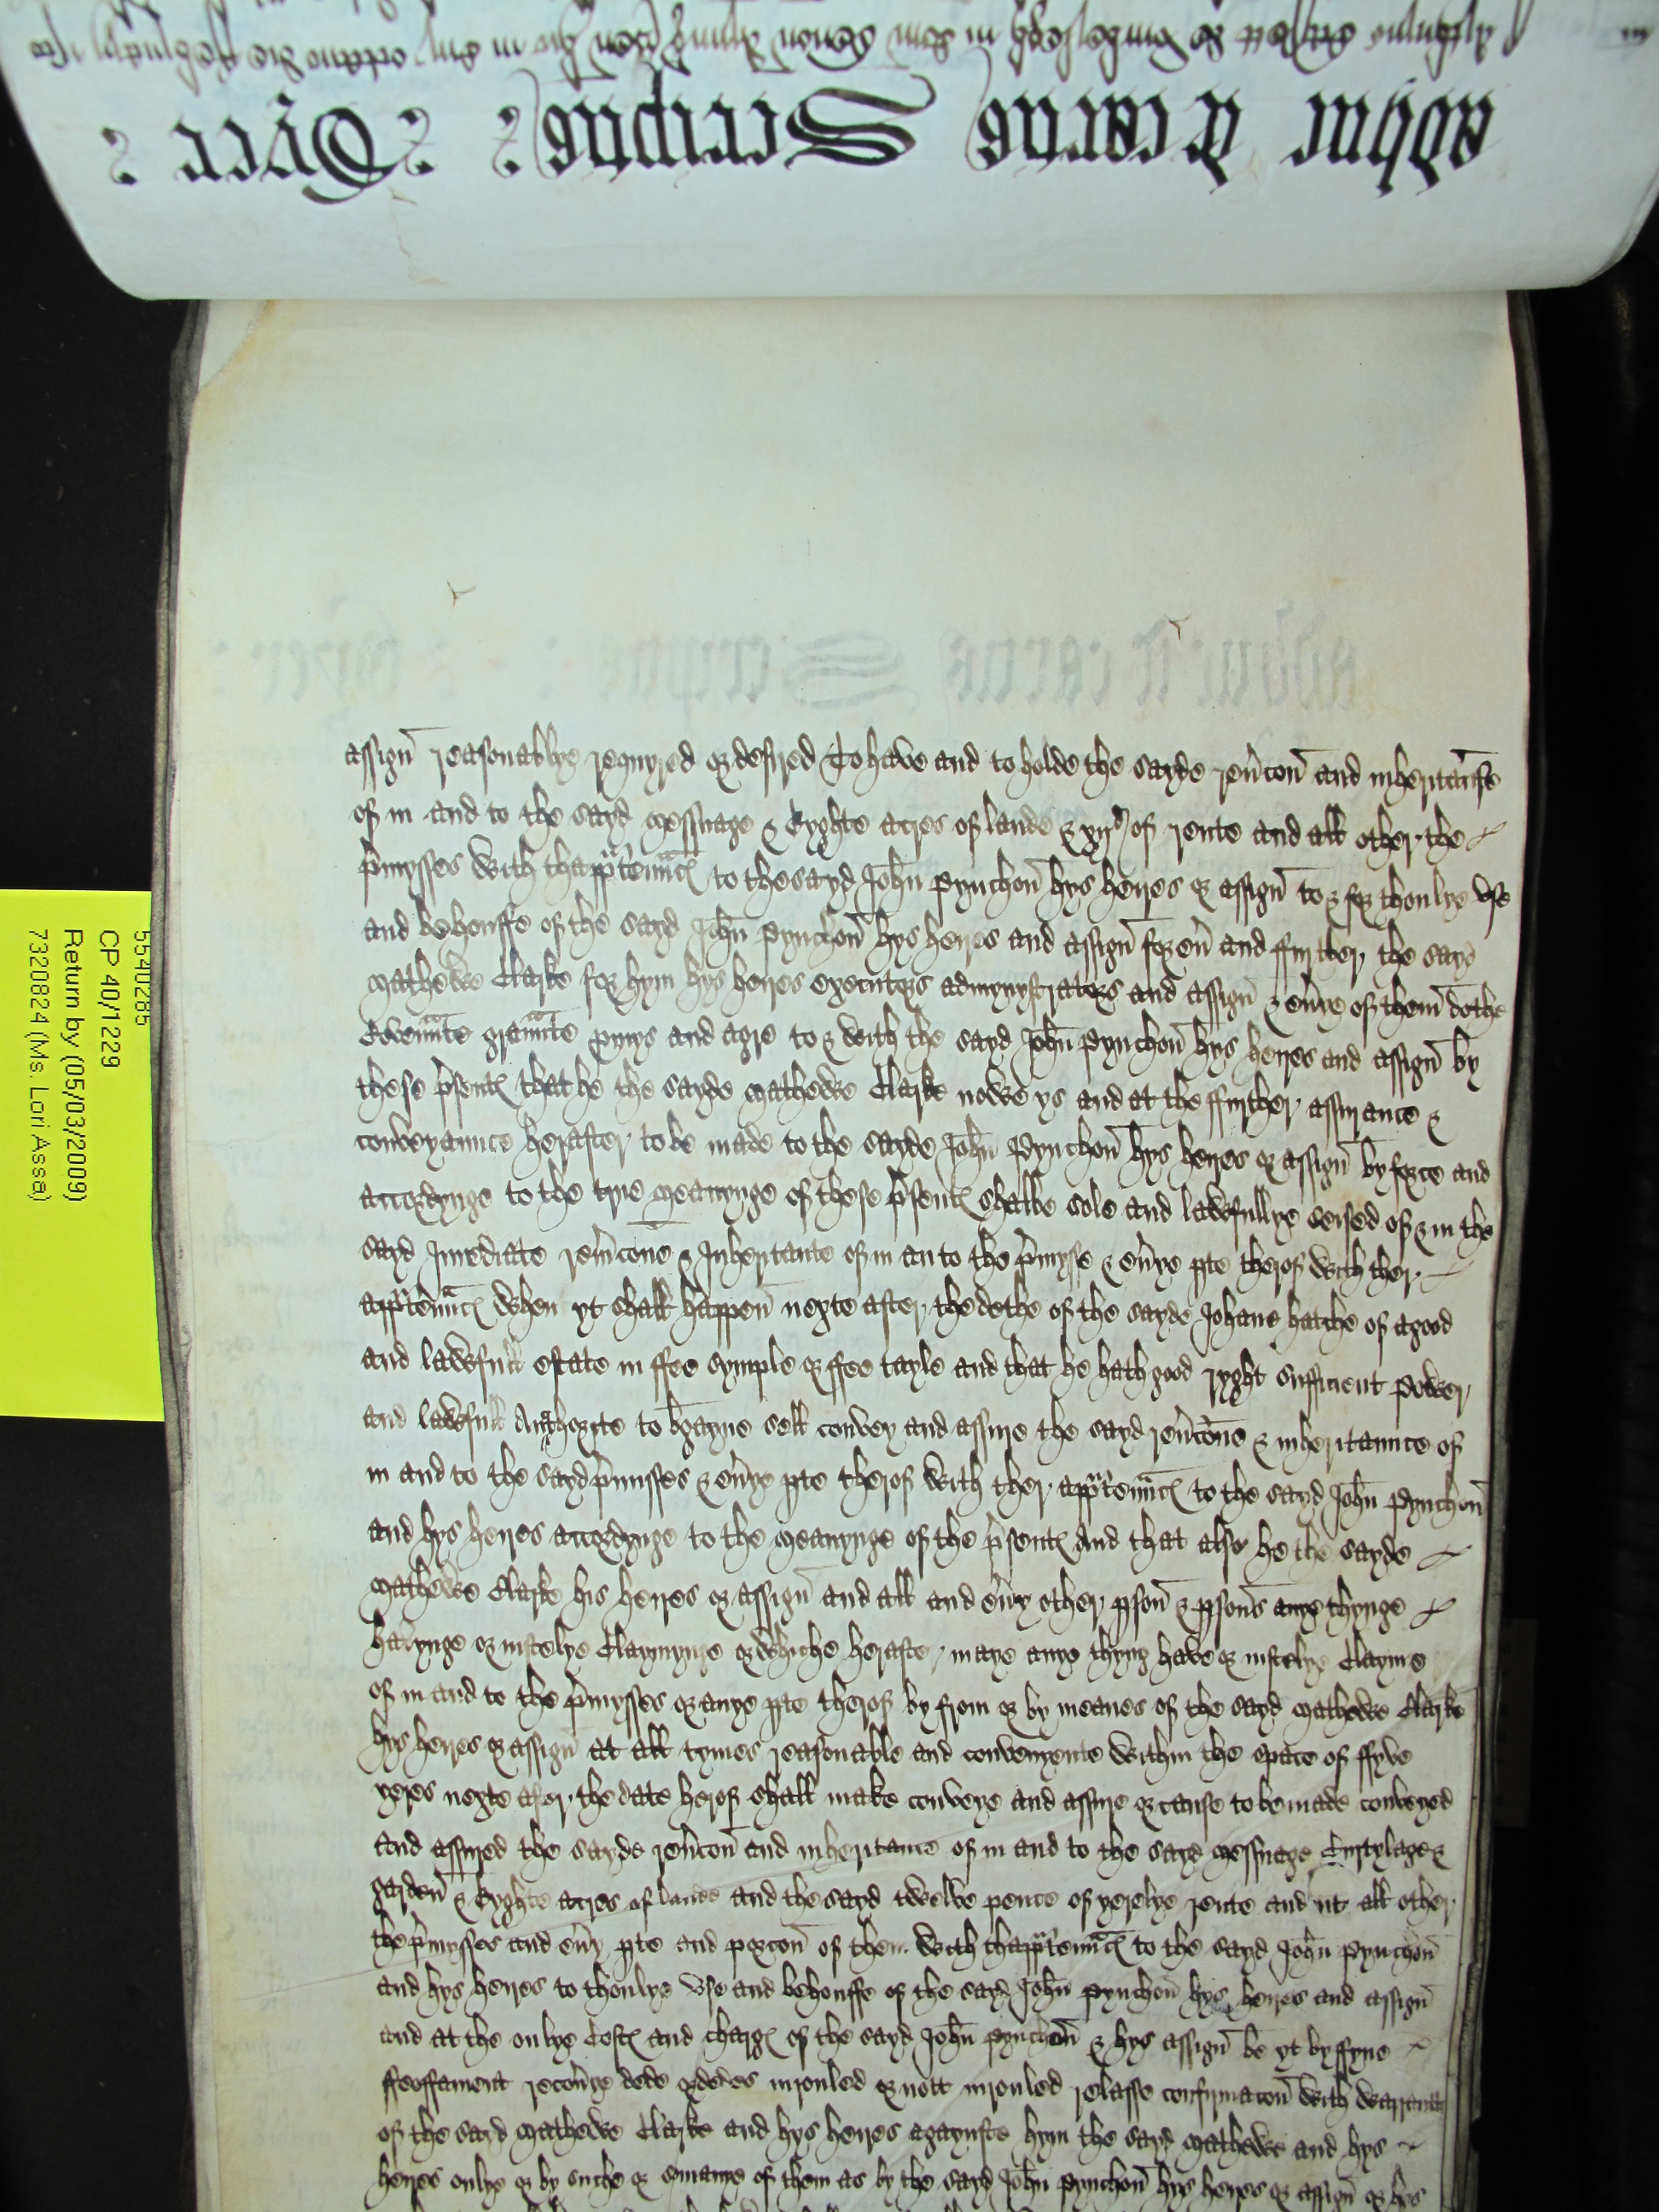 adhuc de cartis Script
assign reasonablye requyred or desired To have and to holde the sayde revcon and inheritaunse
of in and to the sayd messuage & Eyghte acres of lande & xijd of rente and all other the
pmysses with thapptennc to the sayd John Pynchon hys heires or assign to & for thonlye use
and behouffe of the sayd John Pynchon hys heires and assign for ev and ffurther the sayd
Mathewe Clarke for hym hys heires executors admynystrators and assign & evye of them dothe
Covennte graunte pmys and agre to & with the sayd John Pynchon hys heires and assign by
these psentes that he the sayde Mathewe Clarke nowe ys and at the ffurther assurance &
conveyaunce herafter to be made to the sayde John Pynchon hys heires or assign by force and
accordynge to the true meanynge of these psentes shalbe sole and lawfullye seised of & in the
sayd Imediate revcone & Inheritance of in an to the pmysse & evye pte therof with ther
apptennc when yt shall happen nexte after the dethe of the sayde Johane hatche of a good
and lawfull estate in ffee symple or ffee tayle and that he hath good ryght sufficient power
and lawfull Authoryte to bgayne sell convey and assure the sayd revcone & inheritaunce of
in and to the sayd pmisses & evye pte therof with ther apptennc to the sayd John Pynchon
and hys heires accordynge to the meanynge of the psentes And that also he the sayde
Mathewe Clarke his heires or assign and all and evy other pson & psons anye thynge
havynge or justelye Claymynge or whiche herafter maye anye thyng have or justelye Clayme
of in and to the pmysses or anye pte therof by from or by meanes of the sayd Mathewe Clarke
hys heires or assign at all tymes reasonable and convenyente within the space of ffyve
yeres nexte after the date herof shall make conveye and assure or cause to be made conveyed
and assured the sayde revcon and inheritance of in and to the sayd messuage Curtylage &
garden & Eyghte acres of lande and the sayd twelve pence of yerelye rente and all other
the pmysses and evy pte and porcon of them with thapptennc to the sayd John Pynchon
and hys heires to thonlye use and behouffe of the sayd John Pynchon hys heires and assign
and at the onlye Costes and charges of the sayd John Pynchon & hys assign be yt by ffyne
ffeoffament recovye dede or dedes inrouled or nott inrouled relasse confirmacon with warrante
of the sayd Mathewe Clarke and hys heires agaynste hym the sayd Mathewe and hys
heires onlye or by suche or somanie of them as by the sayd John Pynchon hys heires or assign or hys
5540285
CP 40/1229
Return by (05/03/2009)
7320824 (Ms. Lori Assa)